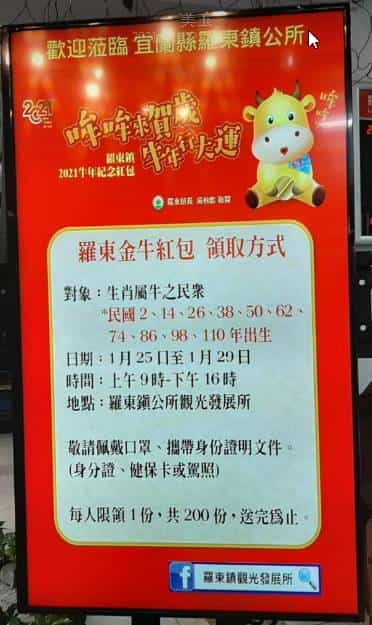 歡迎蒞臨 宜蘭縣羅東鎮公所
2021
哞哞來賀歲
牛年行大運
羅東鎮
2021牛年紀念紅包
哞
哞
羅東鎮長
敬贈
羅東金牛紅包 領取方式
對象：生肖屬牛之民眾
*民國 2、14、26、38、50、62、
74、86、98、110 年出生
日期：1月25日至1月29日
時間：上午9時-下午16時
地點：羅東鎮公所觀光發展所
敬請佩戴口罩、攜帶身份證明文件。
(身分證、健保卡或駕照)
每人限領1份，共200份，送完為止。
f 羅東鎮觀光發展所